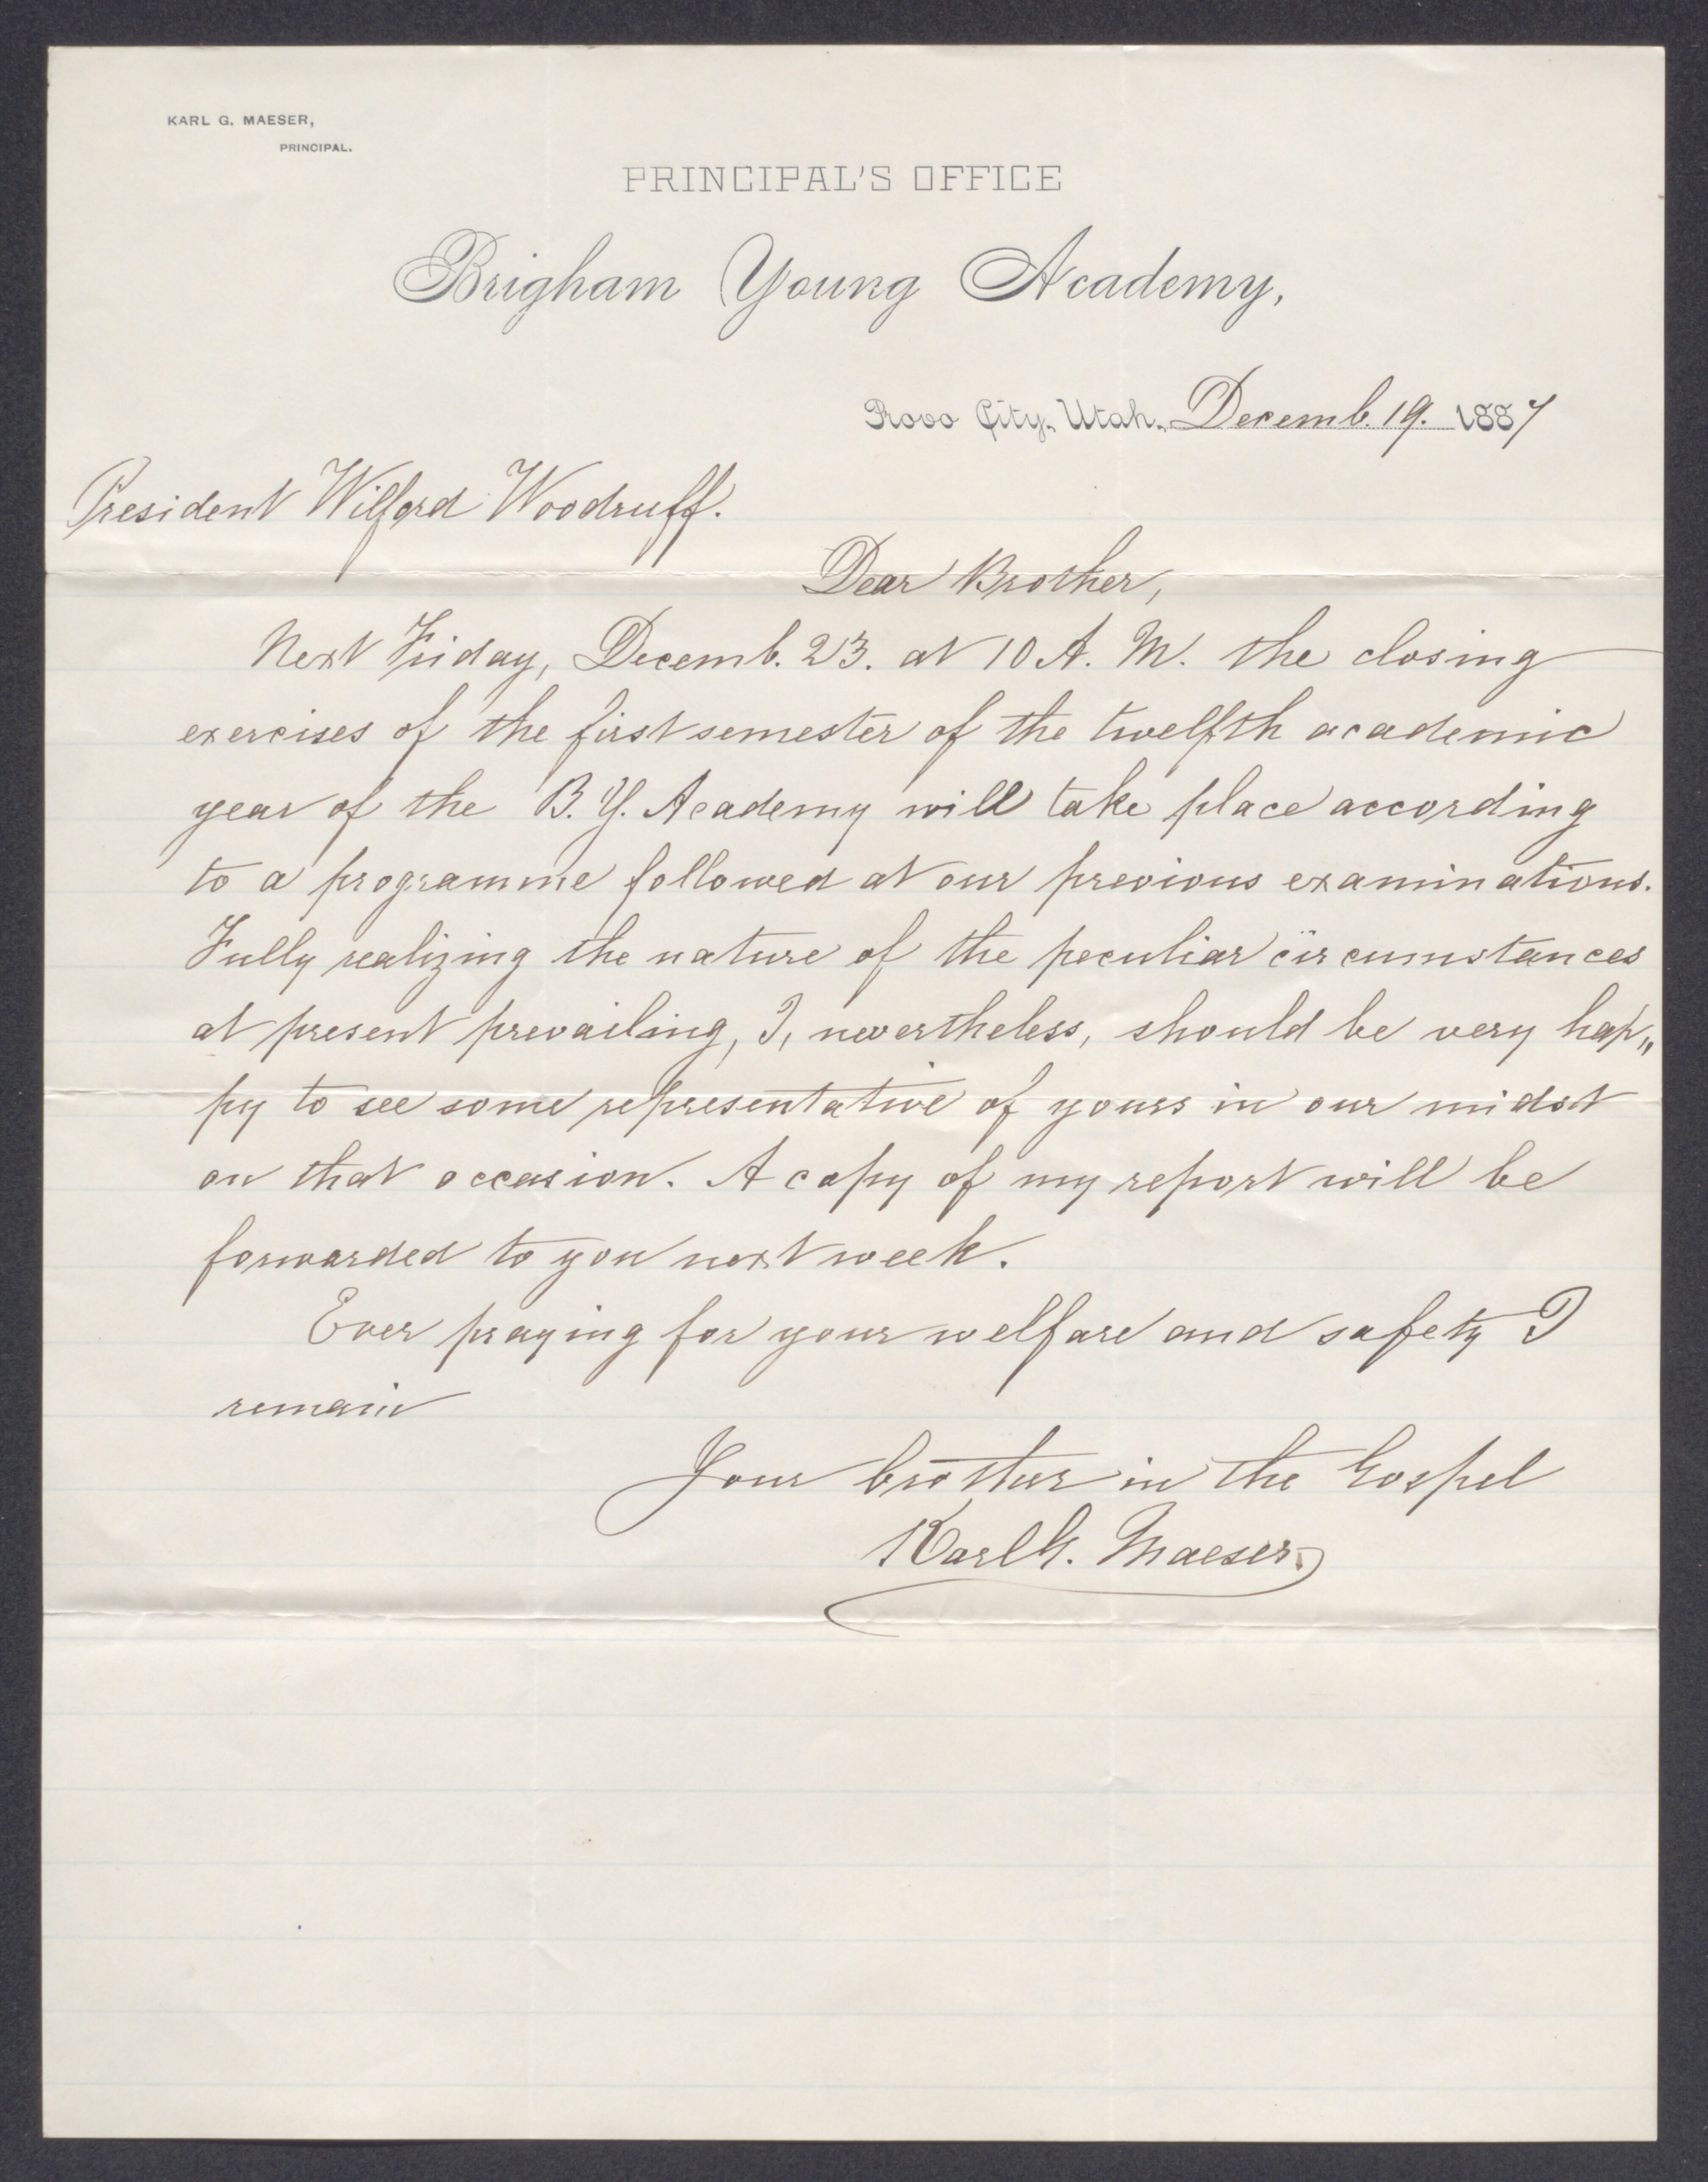 KARL G. MAESER,
PRINCIPAL.
PRINCIPAL'S OFFICE
Brigham Young Academy,
Provo City, Utah, Decemb. 19. 1887
President Wilford Woodruff.
Dear Brother,
Next Friday, Decemb. 23. at 10 A. M. the closing
exercises of the first semester of the twelfth academic
year of the B. Y. Academy will take place according
to a programme followed at our previous examinations.
Fully realizing the nature of the peculiar circumstances
at present prevailing, I, nevertheless, should be very hap„
py to see some representative of yours in our midst
on that occasion. A copy of my report will be
forwarded to you next week.
Ever praying for your welfare and safety I
remain
Your brother in the Gospel
Karl G. Maeser.